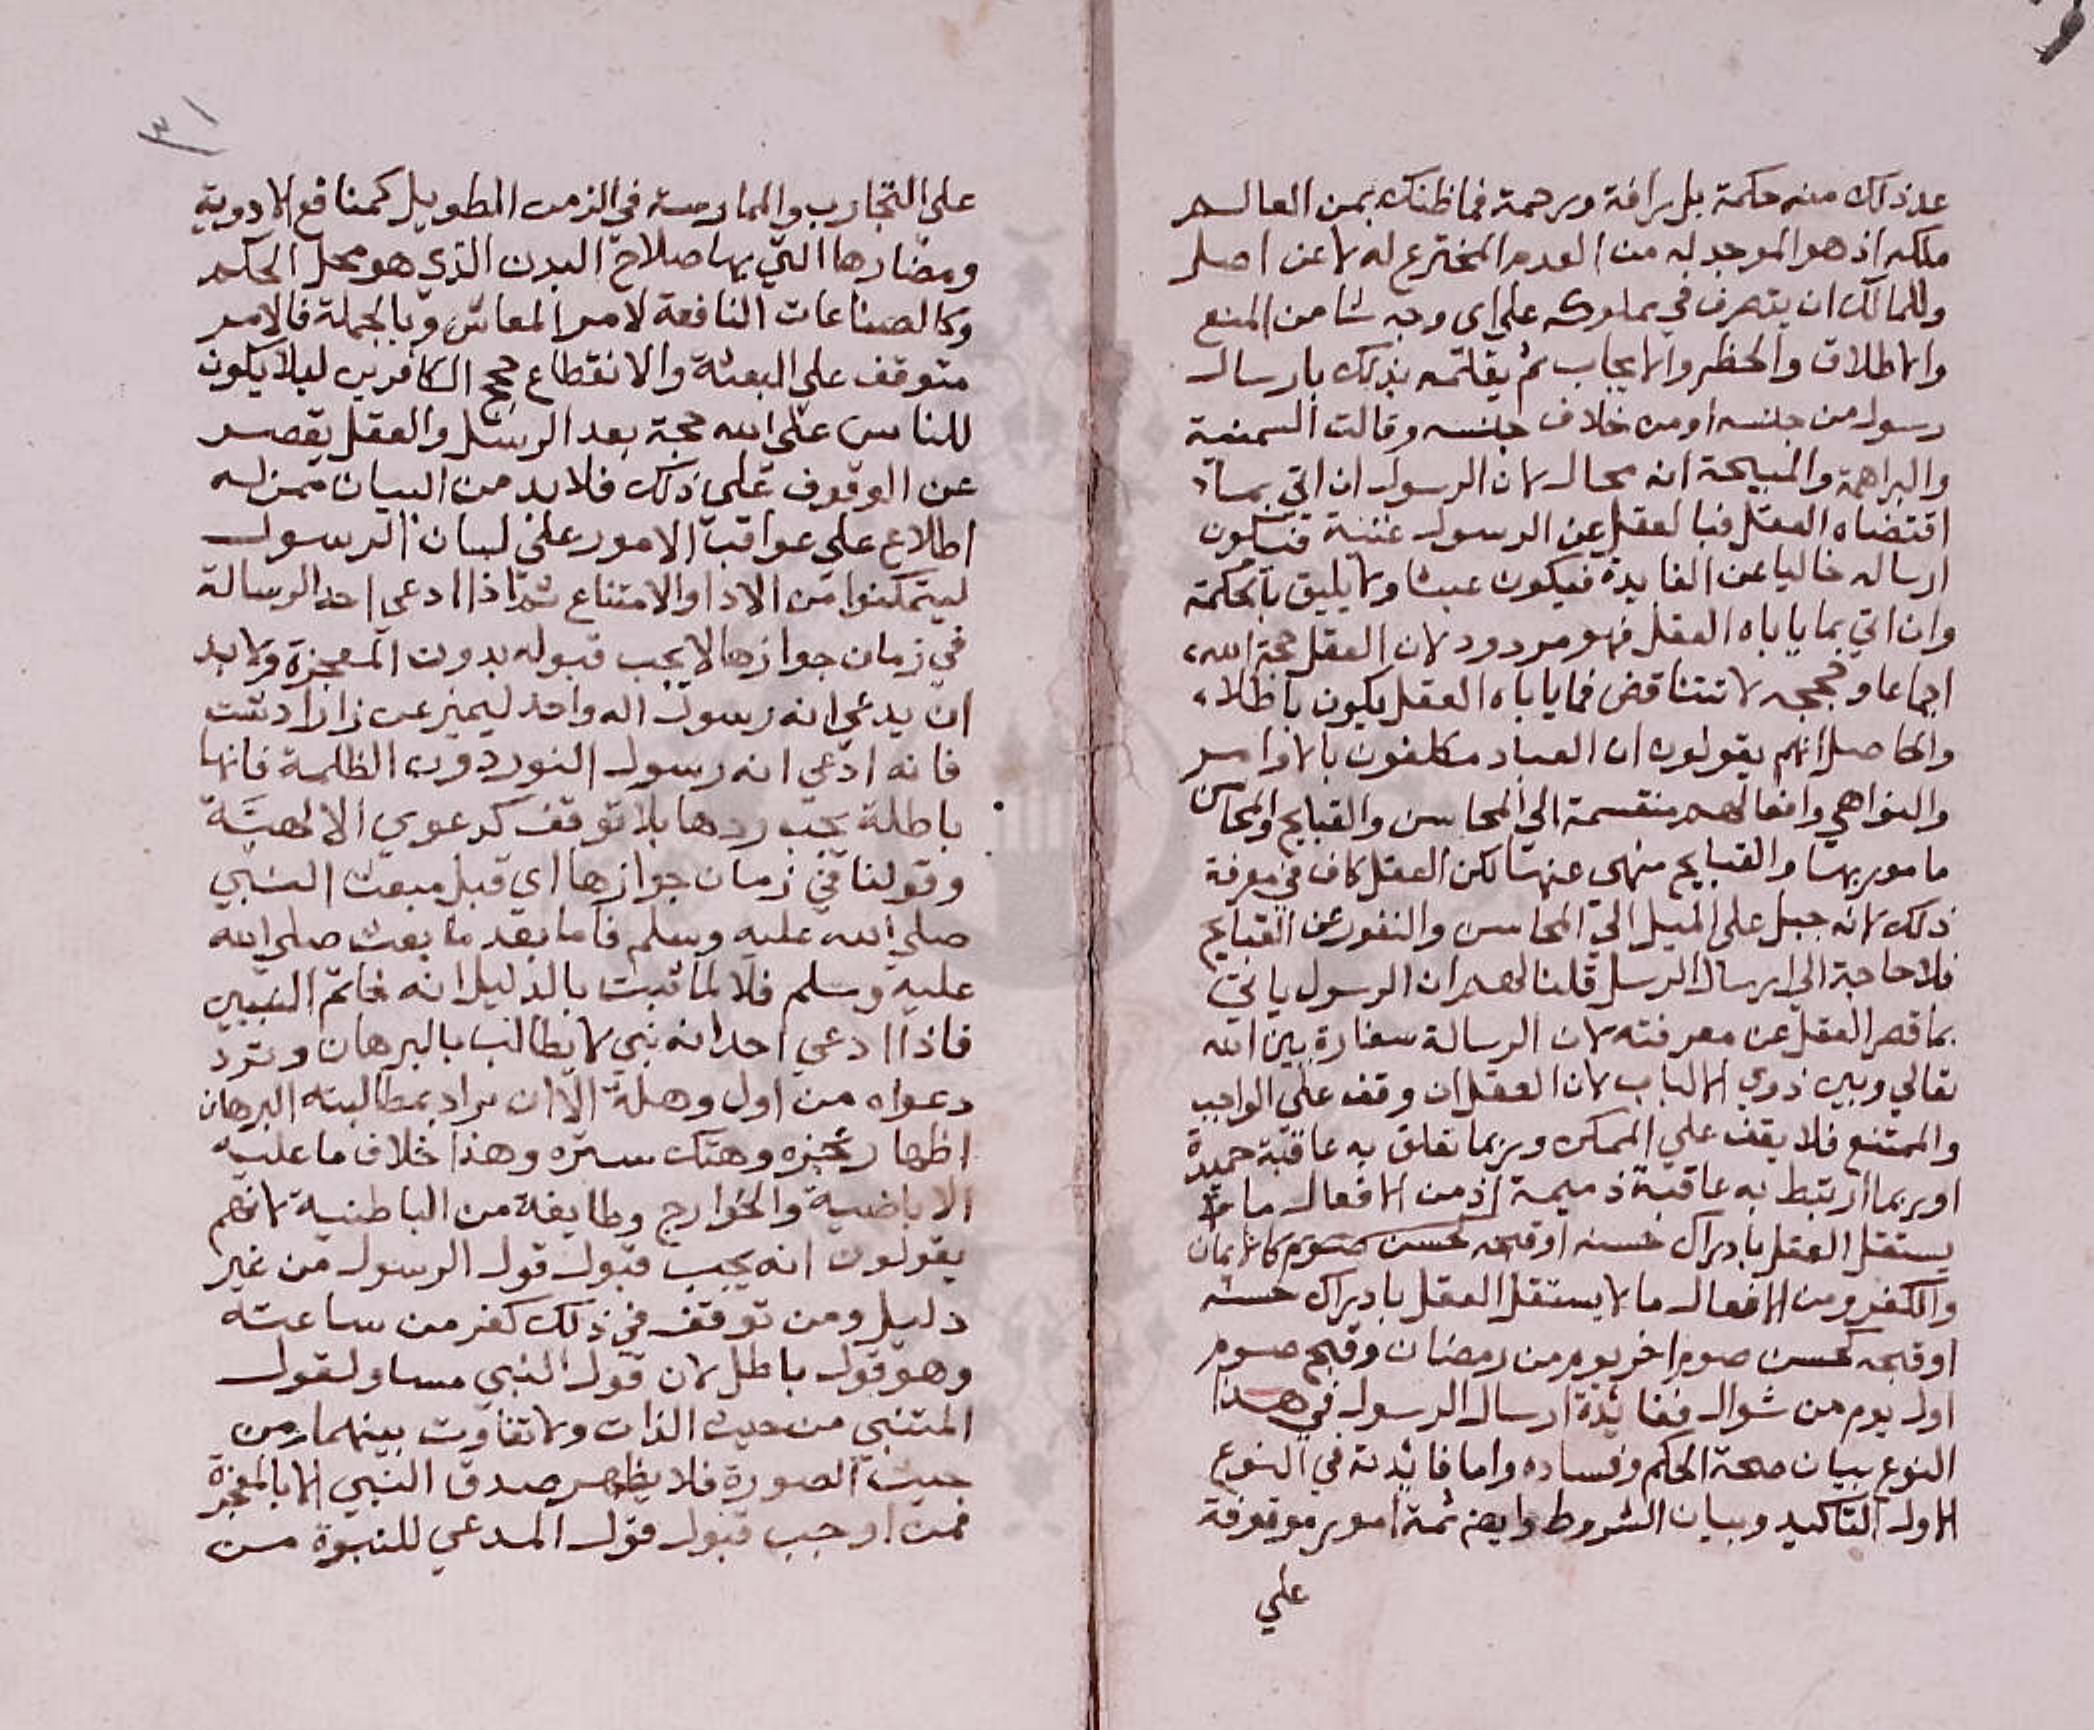 عد ذلك منه حكمة بل رافة ورحمة فما ظنك بمن العالم
ملكه اذ هو الموجد له من العدم المخترع له لا عن اصل
وللمالك ان يتصرف في مملوكه على اي وجه شا من المنع
والاطلاق والحظر والايجاب ثم يقلتمه بذلك بارسال
رسول من جنسه او من خلاف جنسه وقالت السمنية
والبراهمة والمبيحة انه محال لان الرسول ان اتي بما
اقتضاه العقل فبالعقل عن الرسول غنية فتكون
ارساله خاليا عن الفايدة فيكون عبثا ولا يليق بالحكمة
وان اتي بما ياباه العقل فهو مردود لان العقل حجة الله
اجماعا وحججه لا تتناقض فما ياباه العقل يكون باطلاء
والحاصل انهم يقولون ان العباد مكلفون بالاوامر
والنواهي وافعالهم منقسمة الي المحاسن والقبايح والمحاسن
مامور بها والقبايح منهى عنها لكن العقل كاف في معرفة
ذلك لانه جبل على الميل الي المحاسن والنفور عن القبايح
فلا حاجة الي ارسال الرسل قلنا لهم ان الرسول ياتي
بما قصر العقل عن معرفته لان الرسالة سفارة بين الله
تعالي وبين ذوي الالباب لان العقل ان وقف على الواجب
والممتنع فلا يقف علي الممكن وربما تعلق به عاقبة حميدة
او ربما ارتبط به عاقبة ذميمة اذ من الافعال ما
يستقل العقل بادراك حسنه او قبحه كحسن كالايمان
والكفر ومن الافعال ما لا يستقل العقل بادراك حسنه
او قبحه كحسن صوم اخر يوم من رمضان وقبح صوم
اول يوم من شوال ففائدة ارسال الرسول في هذا
النوع بيان صحة الحكم وفساده واما فائدته في النوع
الاول التاكيد وبيان الشروط وايض ثمة امور موقوفة
علي
٣١
على التجارب والممارسة في الزمن الطويل كمنافع الادوية
ومضارها التي بها صلاح البدن الذي هو محل الحكم
وكالصناعات النافعة لامر المعاش وبالجملة فالامر
متوقف علي البعثة والانقطاع حجج الكافرين ليلا يكون
للناس على الله حجة بعد الرسل والعقل يقصر
عن الوقوف على ذلك فلا بد من البيان ممن له
اطلاع على عواقب الامور على لسان الرسول
ليتمكنوا من الادا والامتناع ثم اذا ادعى احد الرسالة
في زمان جوازها لا يجب قبوله بدون المعجزة ولا بد
ان يدعي انه رسول اله واحد ليميز عن زاراد شت
فانه ادعي انه رسول النور دون الظلمة فانها
باطلة يجب ردها بلا توقف كدعوي الالهية
وقولنا في زمان جوازها اي قبل مبعث النبي
صلى الله عليه وسلم فاما بعد ما بعث صلى الله
عليه وسلم فلا لما ثبت بالدليل انه خاتم النبيين
فاذا ادعي احد انه نبي لا يطالب بالبرهان وترد
دعواه من اول وهلة الا ان يراد بمطالبته البرهان
اظهار عجزه وهتك ستره وهذا خلاف ما عليه
الاباضية والخوارج وطايفة من الباطنية لانهم
يقولون انه يجب قبول قول الرسول من غير
دليل ومن توقف في ذلك كفر من ساعته
وهو قول باطل لان قول النبي مساو لقول
المتنبي من حيث الذات ولا تفاوت بينهما من
حيث الصورة فلا يظهر صدق النبي الا بالمعجزة
فمن اوجب قبول قول المدعي للنبوة من